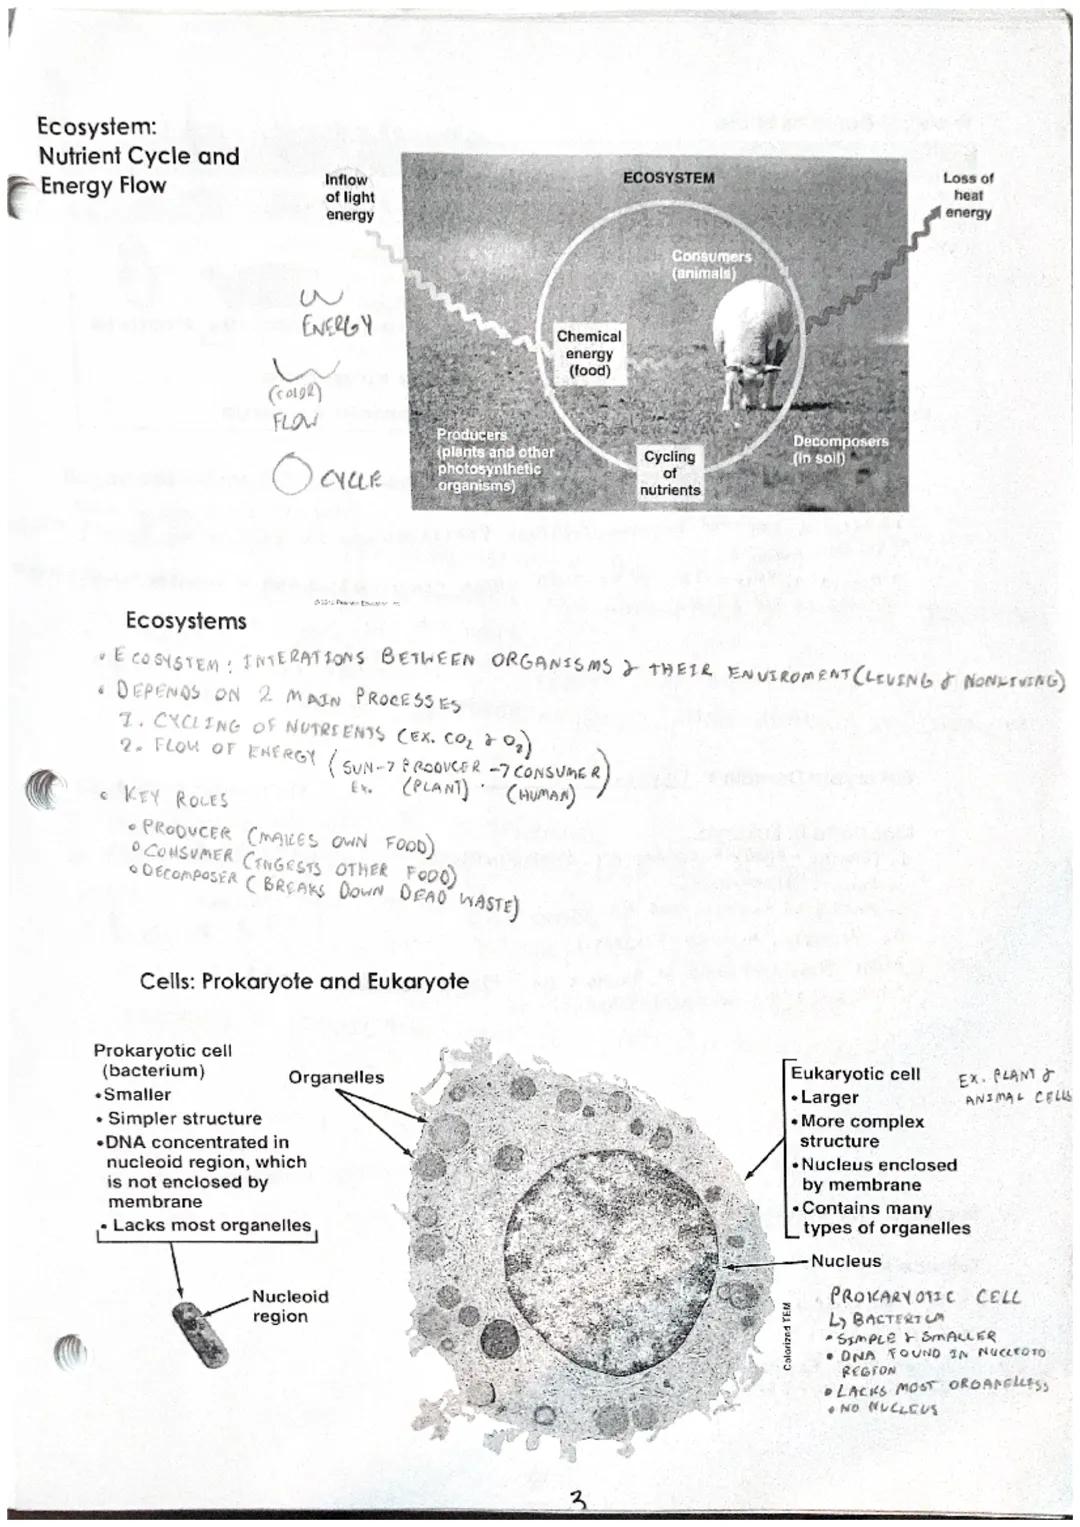 Ecosystem:
Nutrient Cycle and
Energy Flow
Inflow
of light
energy
ECOSYSTEM
Loss of
heat
energy
Consumers
(animals)
Chemical
energy
(food)
Producers
(plants and other
photosynthetic
organisms)
Cycling
of
nutrients
Decomposers
(in soil)
ENERGY
(COLOR)
FLOW
CYCLE
Ecosystems
• ECOSYSTEM: INTERATIONS BETWEEN ORGANISMS & THEIR ENVIROMENT (LIVING & NONLIVING)
• DEPENDS ON 2 MAIN PROCESSES
1. CYCLING OF NUTRIENTS (EX. CO2 & O2)
2. FLOW OF ENERGY (SUN → PRODUCER → CONSUMER)
Ex. (PLANT) (HUMAN)
• KEY ROLES
• PRODUCER (MAKES OWN FOOD)
• CONSUMER (INGESTS OTHER FOOD)
• DECOMPOSER (BREAKS DOWN DEAD WASTE)
Cells: Prokaryote and Eukaryote
Prokaryotic cell
(bacterium)
• Smaller
• Simpler structure
• DNA concentrated in
nucleoid region, which
is not enclosed by
membrane
• Lacks most organelles
Organelles
Nucleoid
region
Eukaryotic cell
• Larger
• More complex
structure
• Nucleus enclosed
by membrane
• Contains many
types of organelles
EX. PLANT &
ANIMAL CELLS
Nucleus
Colorized TEM
PROKARYOTIC CELL
↳ BACTERIUM
• SIMPLE & SMALLER
• DNA FOUND IN NUCLEOID
REGION
• LACKS MOST ORGANELLESS
• NO NUCLEUS
3